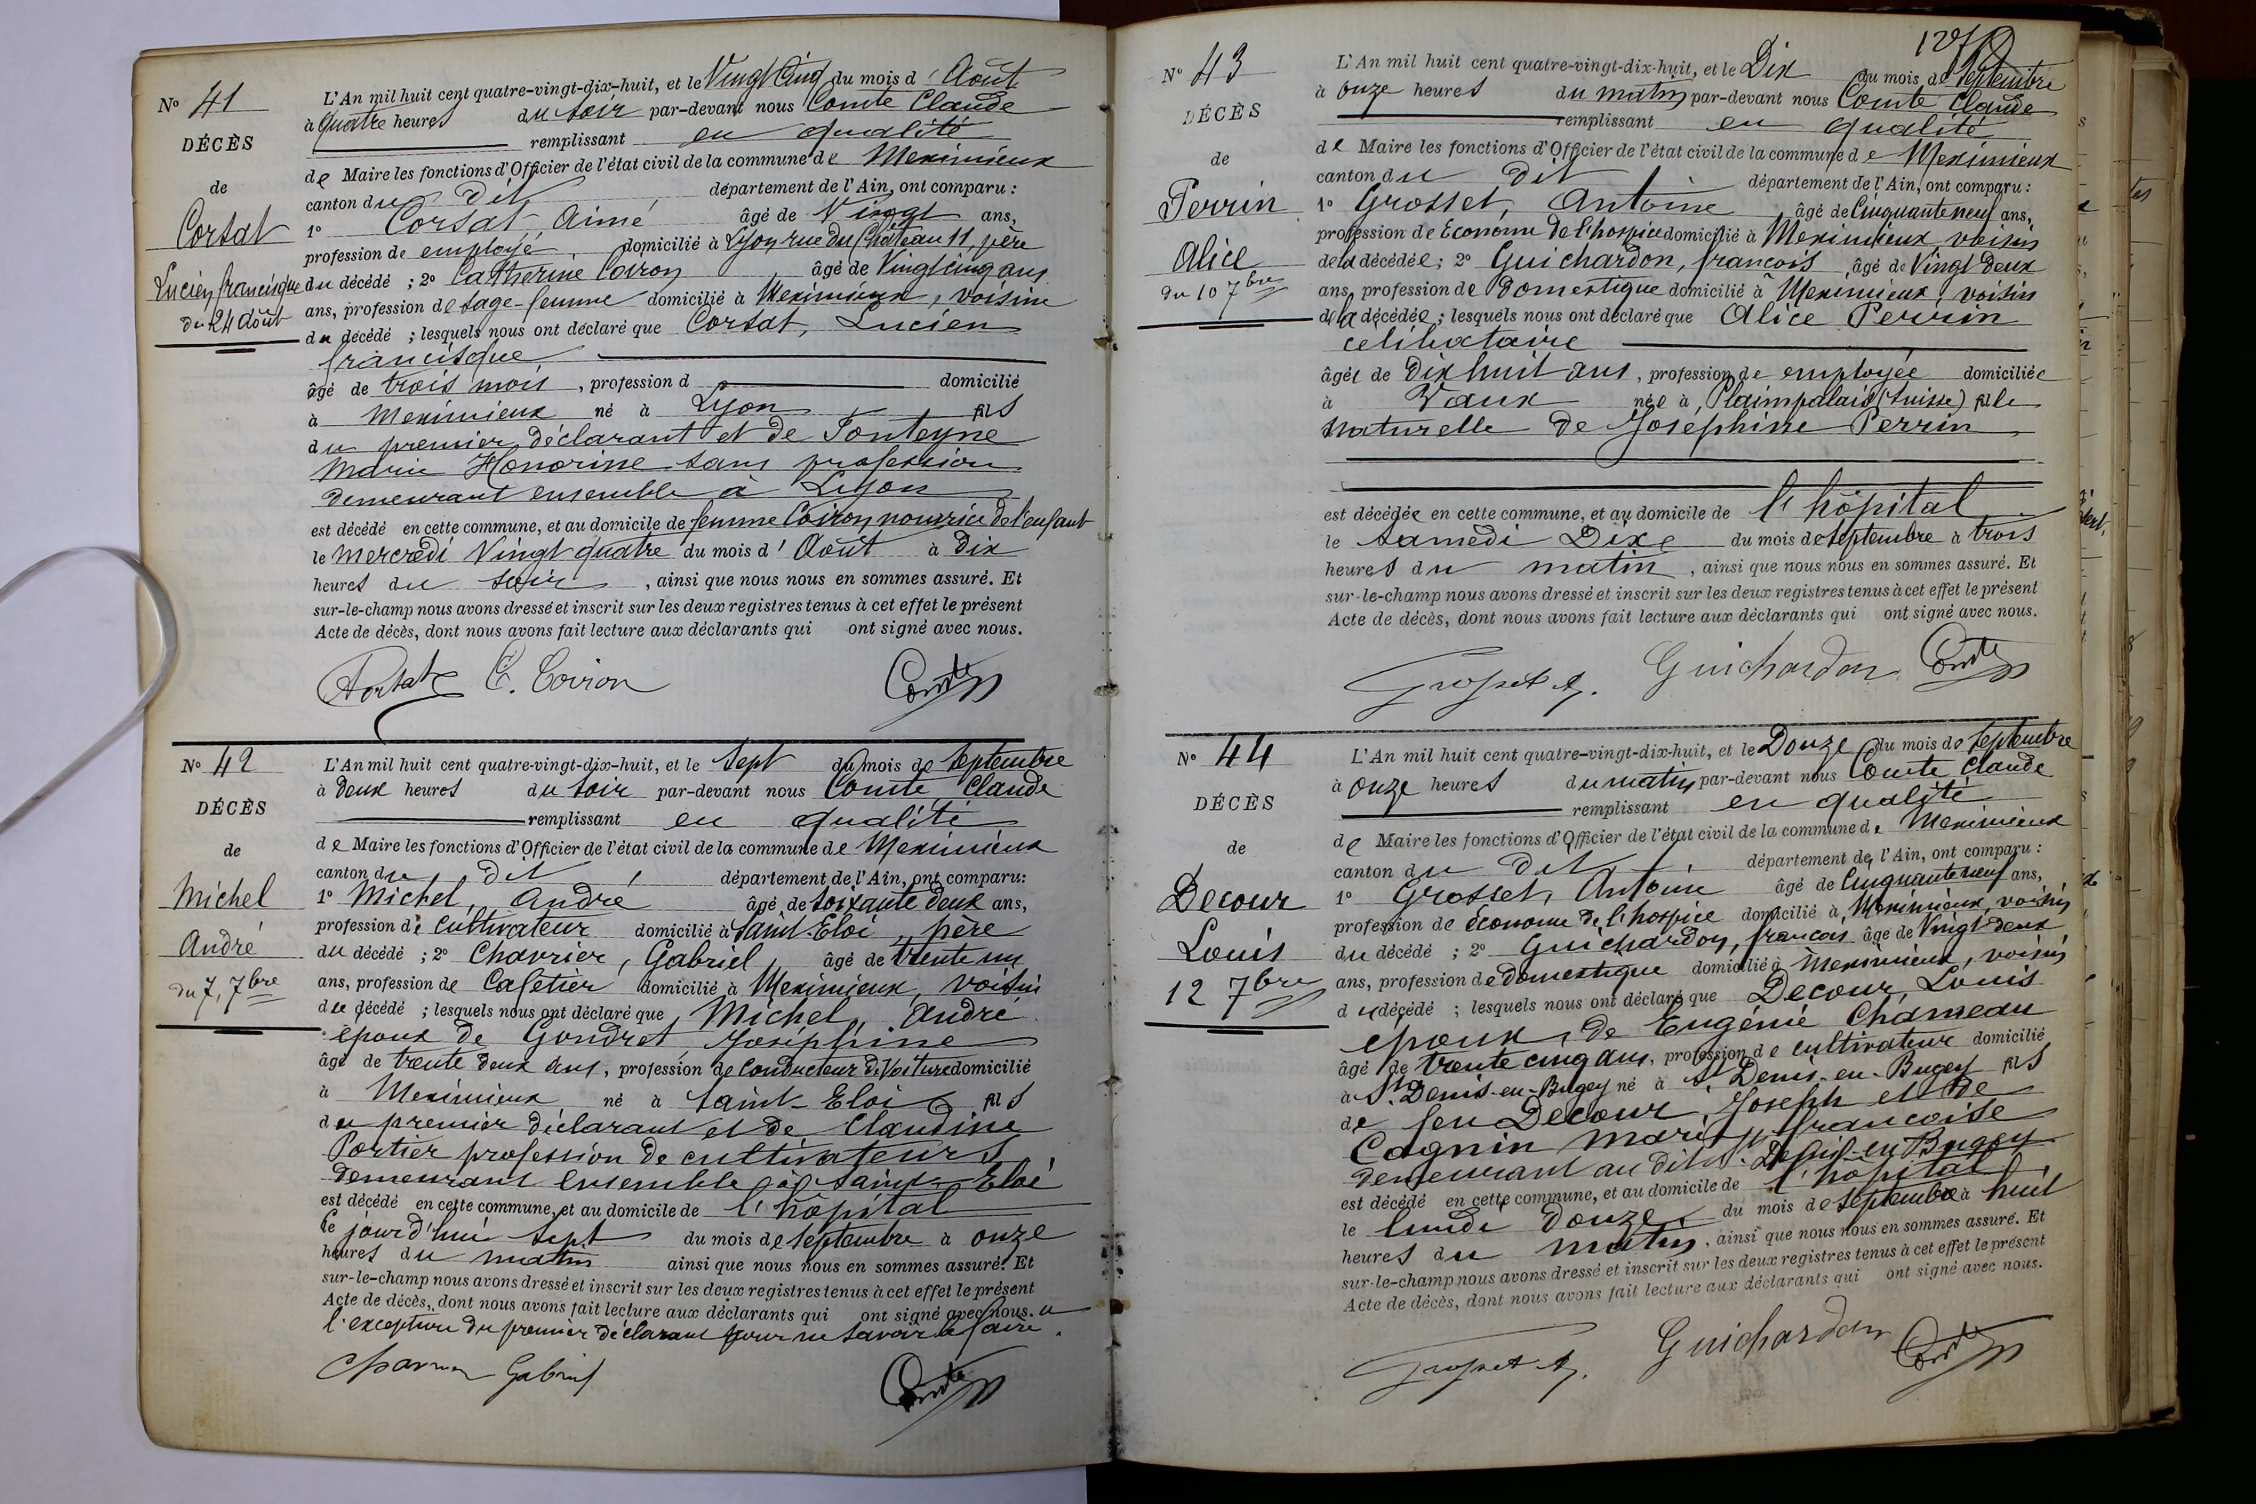 N° 41
DÉCÈS
de
Corsat
Lucien francisque
du 24 Août
L'An mil huit cent quatre-vingt-dix-huit, et le Vingt Cinq du mois d' Août
à Quatre heures du soir par-devant nous Comte Claude
remplissant en qualité
de Maire les fonctions d'Officier de l'état civil de la commune de Meximieux
canton du dit département de l'Ain, ont comparu :
1° Corsat, Aimé âgé de Vingt ans,
profession de employé, domicilié à Lyon rue du Château 11, père
du décédé ; 2° Catherine Coiron âgé de Vingt cinq ans
ans, profession de sage-femme domicilié à Meximieux, voisine
du décédé ; lesquels nous ont déclaré que Corsat, Lucien
francisque
âgé de trois mois, profession d domicilié
à Meximieux né à Lyon fils
du premier déclarant et de Fonteyne
Marie Honorine sans profession
demeurant ensemble à Lyon
est décédé en cette commune, et au domicile de femme Coiron nourrice de l'enfant
le mercredi Vingt quatre du mois d' Août à Dix
heures du soir, ainsi que nous nous en sommes assuré. Et
sur-le-champ nous avons dressé et inscrit sur les deux registres tenus à cet effet le présent
Acte de décès, dont nous avons fait lecture aux déclarants qui ont signé avec nous.
C. Coiron Comte
N° 42
DÉCÈS
de
Michel
André
du 7, 7bre
L'An mil huit cent quatre-vingt-dix-huit, et le Sept du mois de Septembre
à Deux heures du soir par-devant nous Comte Claude
remplissant en qualité
de Maire les fonctions d'Officier de l'état civil de la commune de Meximieux
canton du dit, département de l'Ain, ont comparu:
1° Michel, André âgé de soixante deux ans,
profession de cultivateur domicilié à Saint-Eloi, père
du décédé ; 2° Chavrier, Gabriel, âgé de trente un
ans, profession de Cafetier domicilié à Meximieux, voisin
du décédé ; lesquels nous ont déclaré que Michel, André
époux de Gondret Joséphine
âgé de trente deux ans, profession de Conducteur de Voiture domicilié
à Meximieux né à Saint-Eloi fils
du premier déclarant et de Claudine
Portier profession de cultivateurs
demeurant ensemble à Saint-Eloi
est décédé en cette commune, et au domicile de l'hôpital
le jour d'hui Sept du mois de septembre à onze
heures du matin ainsi que nous nous en sommes assuré. Et
sur-le-champ nous avons dressé et inscrit sur les deux registres tenus à cet effet le présent
Acte de décès, dont nous avons fait lecture aux déclarants qui ont signé avec nous. a
l'exception du premier déclarant pour ne savoir le faire.
Gabriel Comte
N° 43
DÉCÈS
de
Perrin
Alice
du 10 7bre
L'An mil huit cent quatre-vingt-dix-huit, et le Dix du mois de Septembre
à onze heures du matin par-devant nous Comte Claude
remplissant en qualité
de Maire les fonctions d'Officier de l'état civil de la commune de Meximieux
canton du dit département de l'Ain, ont comparu :
1° Grosset, Antoine âgé de Cinquante neuf ans,
profession de Econome de l'hospice domicilié à Meximieux, voisin
de la décédée ; 2° Guichardon, françois, âgé de Vingt deux
ans, profession de Domestique domicilié à Meximieux, voisin
de la décédée ; lesquels nous ont déclaré que Alice Perrin
célibataire
âgée de dix huit ans, profession de employée domiciliée
à Vaux née à Plaimpalais (Suisse) fille
naturelle de Joséphine Perrin
est décédée en cette commune, et au domicile de l'hôpital
le samedi Dix du mois de septembre à trois
heures du matin, ainsi que nous nous en sommes assuré. Et
sur-le-champ nous avons dressé et inscrit sur les deux registres tenus à cet effet le présent
Acte de décès, dont nous avons fait lecture aux déclarants qui ont signé avec nous.
Grosset A. Guichardon Comte
N° 44
DÉCÈS
de
Decour
Louis
12 7bre
L'An mil huit cent quatre-vingt-dix-huit, et le Douze du mois de Septembre
à onze heures du matin par-devant nous Comte Claude
remplissant en qualité
de Maire les fonctions d'Officier de l'état civil de la commune de Meximieux
canton du dit département de l'Ain, ont comparu :
1° Grosset, Antoine âgé de Cinquante neuf ans,
profession de Econome de l'hospice domicilié à Meximieux, voisin
du décédé ; 2° Guichardon, francois âgé de Vingt deux
ans, profession de domestique domicilié à Meximieux, voisin
du décédé ; lesquels nous ont déclaré que Decour, Louis
époux, de Eugénie Chameau
âgé de trente cinq ans, profession de cultivateur domicilié
à St Denis-en-Bugey né à St Denis-en-Bugey fils
de feu Decour, Joseph et de
Cagnin Marie francoise
demeurant au dit St Denis-en-Bugey
est décédé en cette commune, et au domicile de l'hôpital
le lundi Douze du mois de septembre à huit
heures du matin, ainsi que nous nous en sommes assuré. Et
sur-le-champ nous avons dressé et inscrit sur les deux registres tenus à cet effet le présent
Acte de décès, dont nous avons fait lecture aux déclarants qui ont signé avec nous.
Grosset A. Guichardon Comte